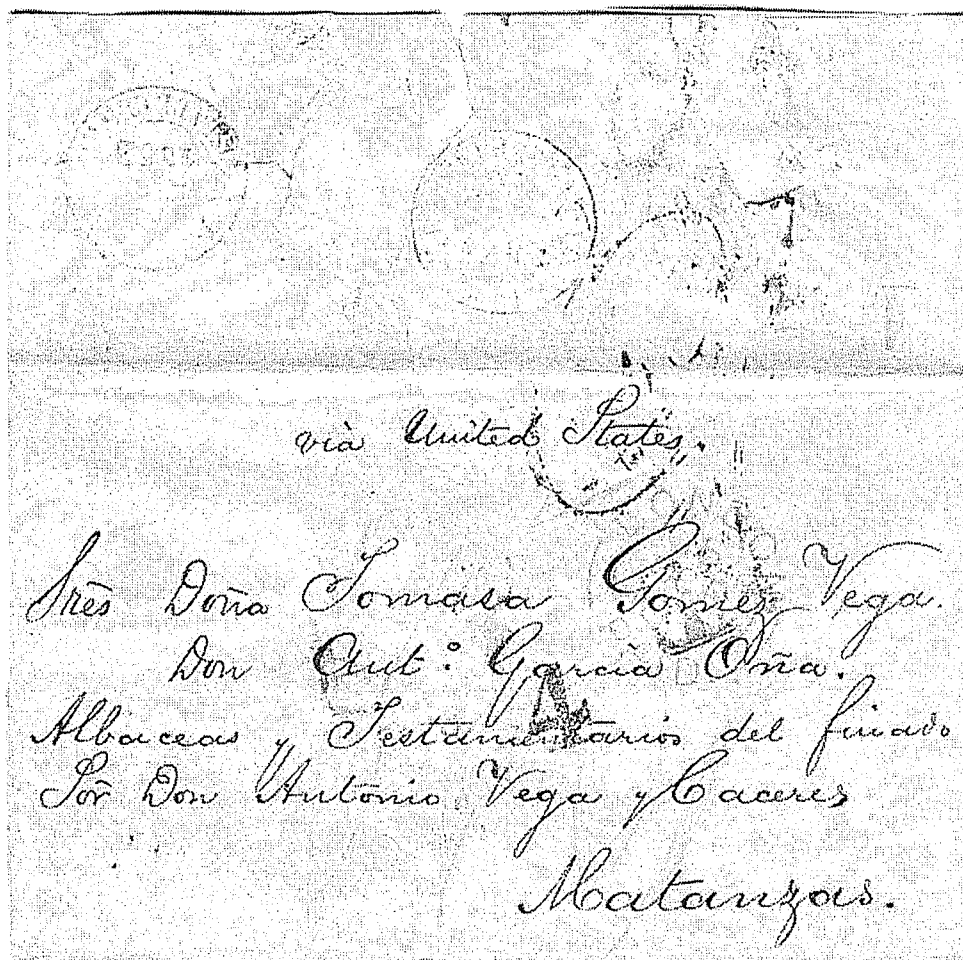 vià United States.
Srēs Doña Tomasa Gomez Vega.
Don Ant.º Garcia Oña.
Albaceas y Testamentarios del finado
Sōr Don Antonio Vega y Caceres
Matanzas.